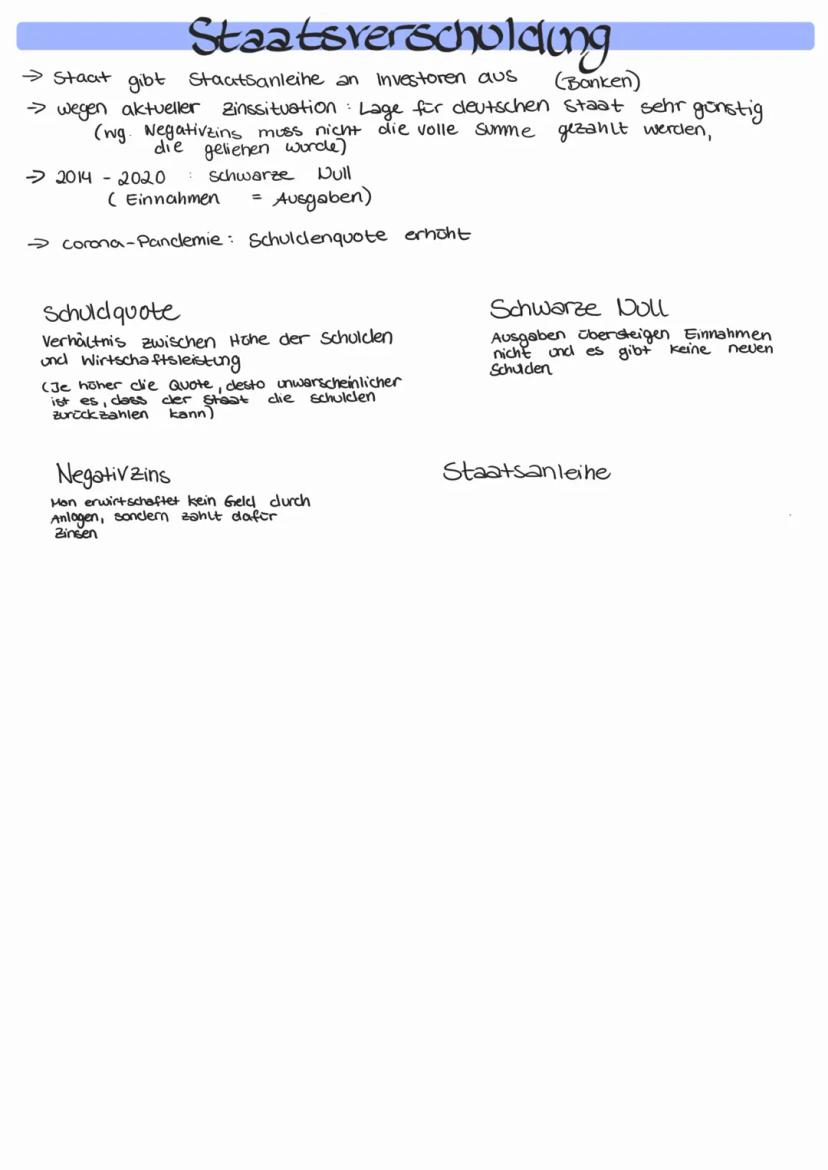 Staatsverschuldung
→ Staat gibt Staatsanleihe an Investoren aus (Banken)
→ wegen aktueller Zinssituation : Lage für deutschen Staat sehr günstig
(wg. Negativzins muss nicht die volle Summe gezahlt werden,
die geliehen wurde)
→ 2014 - 2020 : schwarze Null
( Einnahmen = Ausgaben)
→ corona-Pandemie : Schuldenquote erhöht
Schuldquote
Verhältnis zwischen Höhe der Schulden
und Wirtschaftsleistung
(Je höher die Quote, desto unwarscheinlicher
ist es, dass der Staat die schulden
zurückzahlen kann)
Schwarze Null
Ausgaben übersteigen Einnahmen
nicht und es gibt keine neuen
Schulden
Negativzins
Man erwirtschaftet kein Geld durch
Anlagen, sondern zahlt dafür
Zinsen
Staatsanleihe